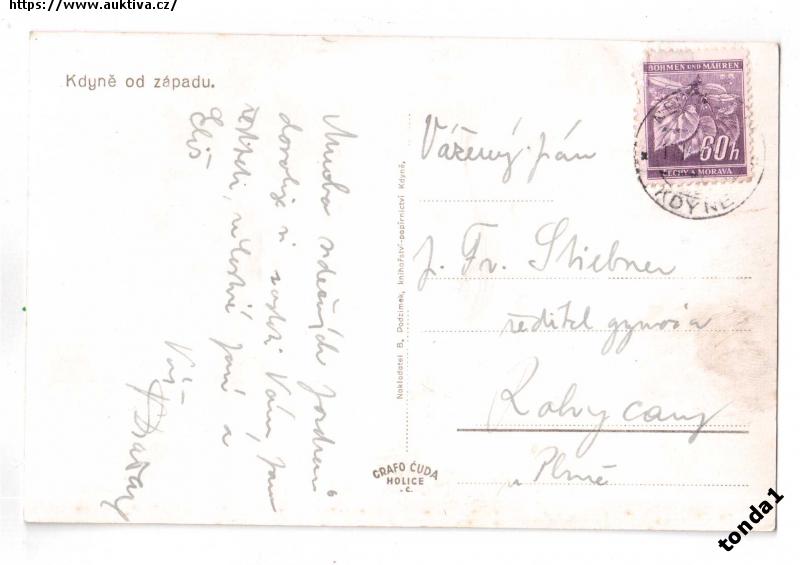 https://www.auktiva.cz/
Kdyně od západu.
BÖHMEN UND MÄHREN
60h
ČECHY A MORAVA
KDYNĚ
Vážený pán
J. Fr. Stiebner
ředitel gymnasia
Rokycany
u Plzně
Mnoho srdečných pozdravů
dovoluji si zaslati Vám, pane
řediteli, milostivé paní a
Váš
Nakladatel B. Podzimek, knihařství-papírnictví Kdyně.
GRAFO ČUDA
HOLICE
-C.
tonda1